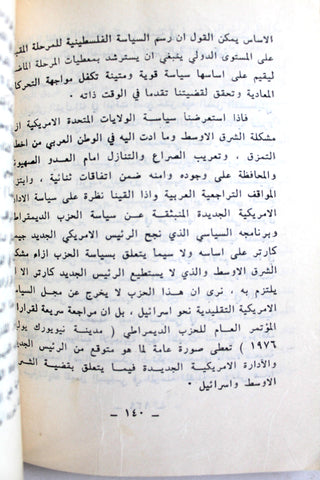 الاساس يمكن القول ان رسم السياسة الفلسطينية للمرحلة
على المستوى الدولي ينبغي ان يسترشد بمعطيات المرحلة
ليقيم على اساسها سياسة قوية ومتينة تكفل مواجهة
المعادية وتحقق لقضيتنا تقدما في الوقت ذاته .
فاذا استعرضنا سياسة الولايات المتحدة الامريكية از
مشكلة الشرق الاوسط وما ادت اليه في الوطن العربي من
التمزق ، وتعريب الصراع والتنازل امام العدو
والمحافظة على وجوده وامنه ضمن اتفاقات ثنائية ،
المواقف التراجعية العربية واذا القينا نظرة على سياسة
الامريكية الجديدة المنبثقة عن سياسة الحزب
وبرنامجه السياسي الذي نجح الرئيس الامريكي الجديد
كارتر على اساسه ولا سيما يتعلق بسياسة الحزب ازاء
الشرق الاوسط والذي لا يستطيع الرئيس الجديد كارتر الا
يلتزم به ، نرى ان هذا الحزب لا يخرج عن مجل
الامريكية التقليدية نحو اسرائيل ، بل ان مراجعة سريعة
المؤتمر العام للحزب الديمراطي ( مدينة نيويورك
١٩٧٦ ) تعطي صورة عامة لما هو متوقع من الرئيس
والأدارة الامريكية الجديدة فيما يتعلق بقضية
الاوسط واسرائيل .
— ١٤٠ —